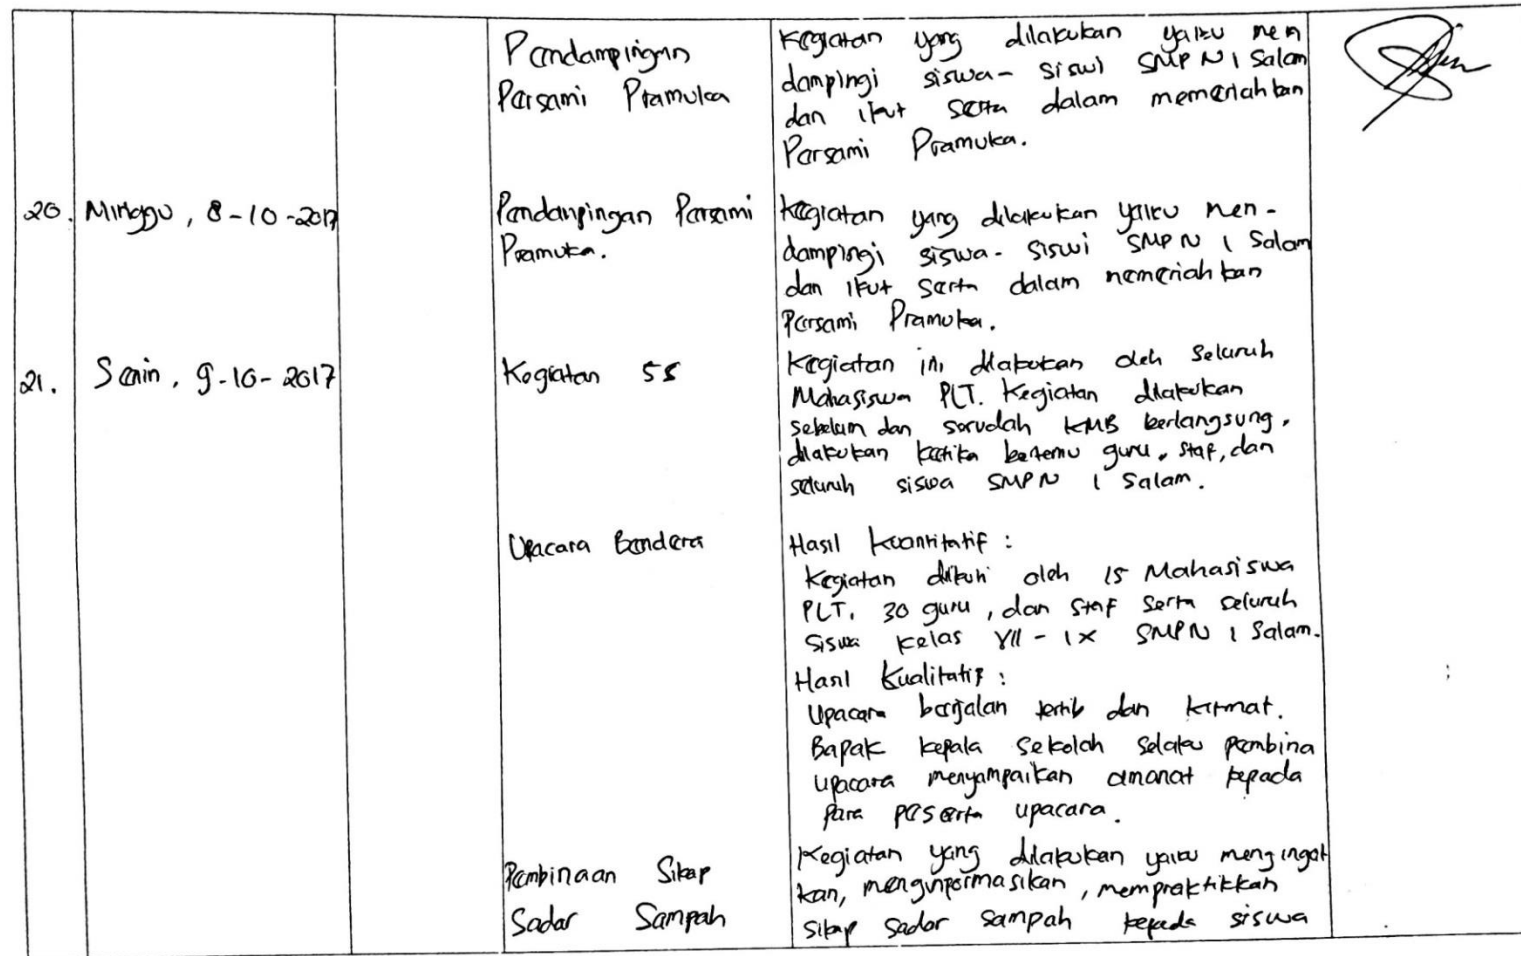 Pendampingan
Persami Pramuka
Kegiatan yang dilakukan yaitu men
dampingi siswa-siswi SMP N 1 Salam
dan ikut serta dalam memeriahkan
Persami Pramuka.
20. Minggu, 8-10-2017
Pendampingan Persami
Pramuka.
Kegiatan yang dilakukan yaitu men-
dampingi siswa-siswi SMP N 1 Salam
dan ikut serta dalam memeriahkan
Persami Pramuka.
21. Senin, 9-10-2017
Kegiatan 5S
Kegiatan ini dilakukan oleh seluruh
Mahasiswa PLT. Kegiatan dilakukan
sebelum dan sesudah KMB berlangsung,
dilakukan ketika bertemu guru, staf, dan
seluruh siswa SMP N 1 Salam.
Upacara Bendera
Hasil Kuantitatif :
Kegiatan diikuti oleh 15 Mahasiswa
PLT, 30 guru, dan staf serta seluruh
siswa kelas VII - IX SMP N 1 Salam.
Hasil Kualitatif :
Upacara berjalan tertib dan khitmat.
Bapak kepala sekolah selaku pembina
upacara menyampaikan amanat kepada
para peserta upacara.
Pembinaan Sikap
Sadar Sampah
Kegiatan yang dilakukan yaitu mengingat
kan, menginformasikan, mempraktikkan
sikap sadar sampah kepada siswa